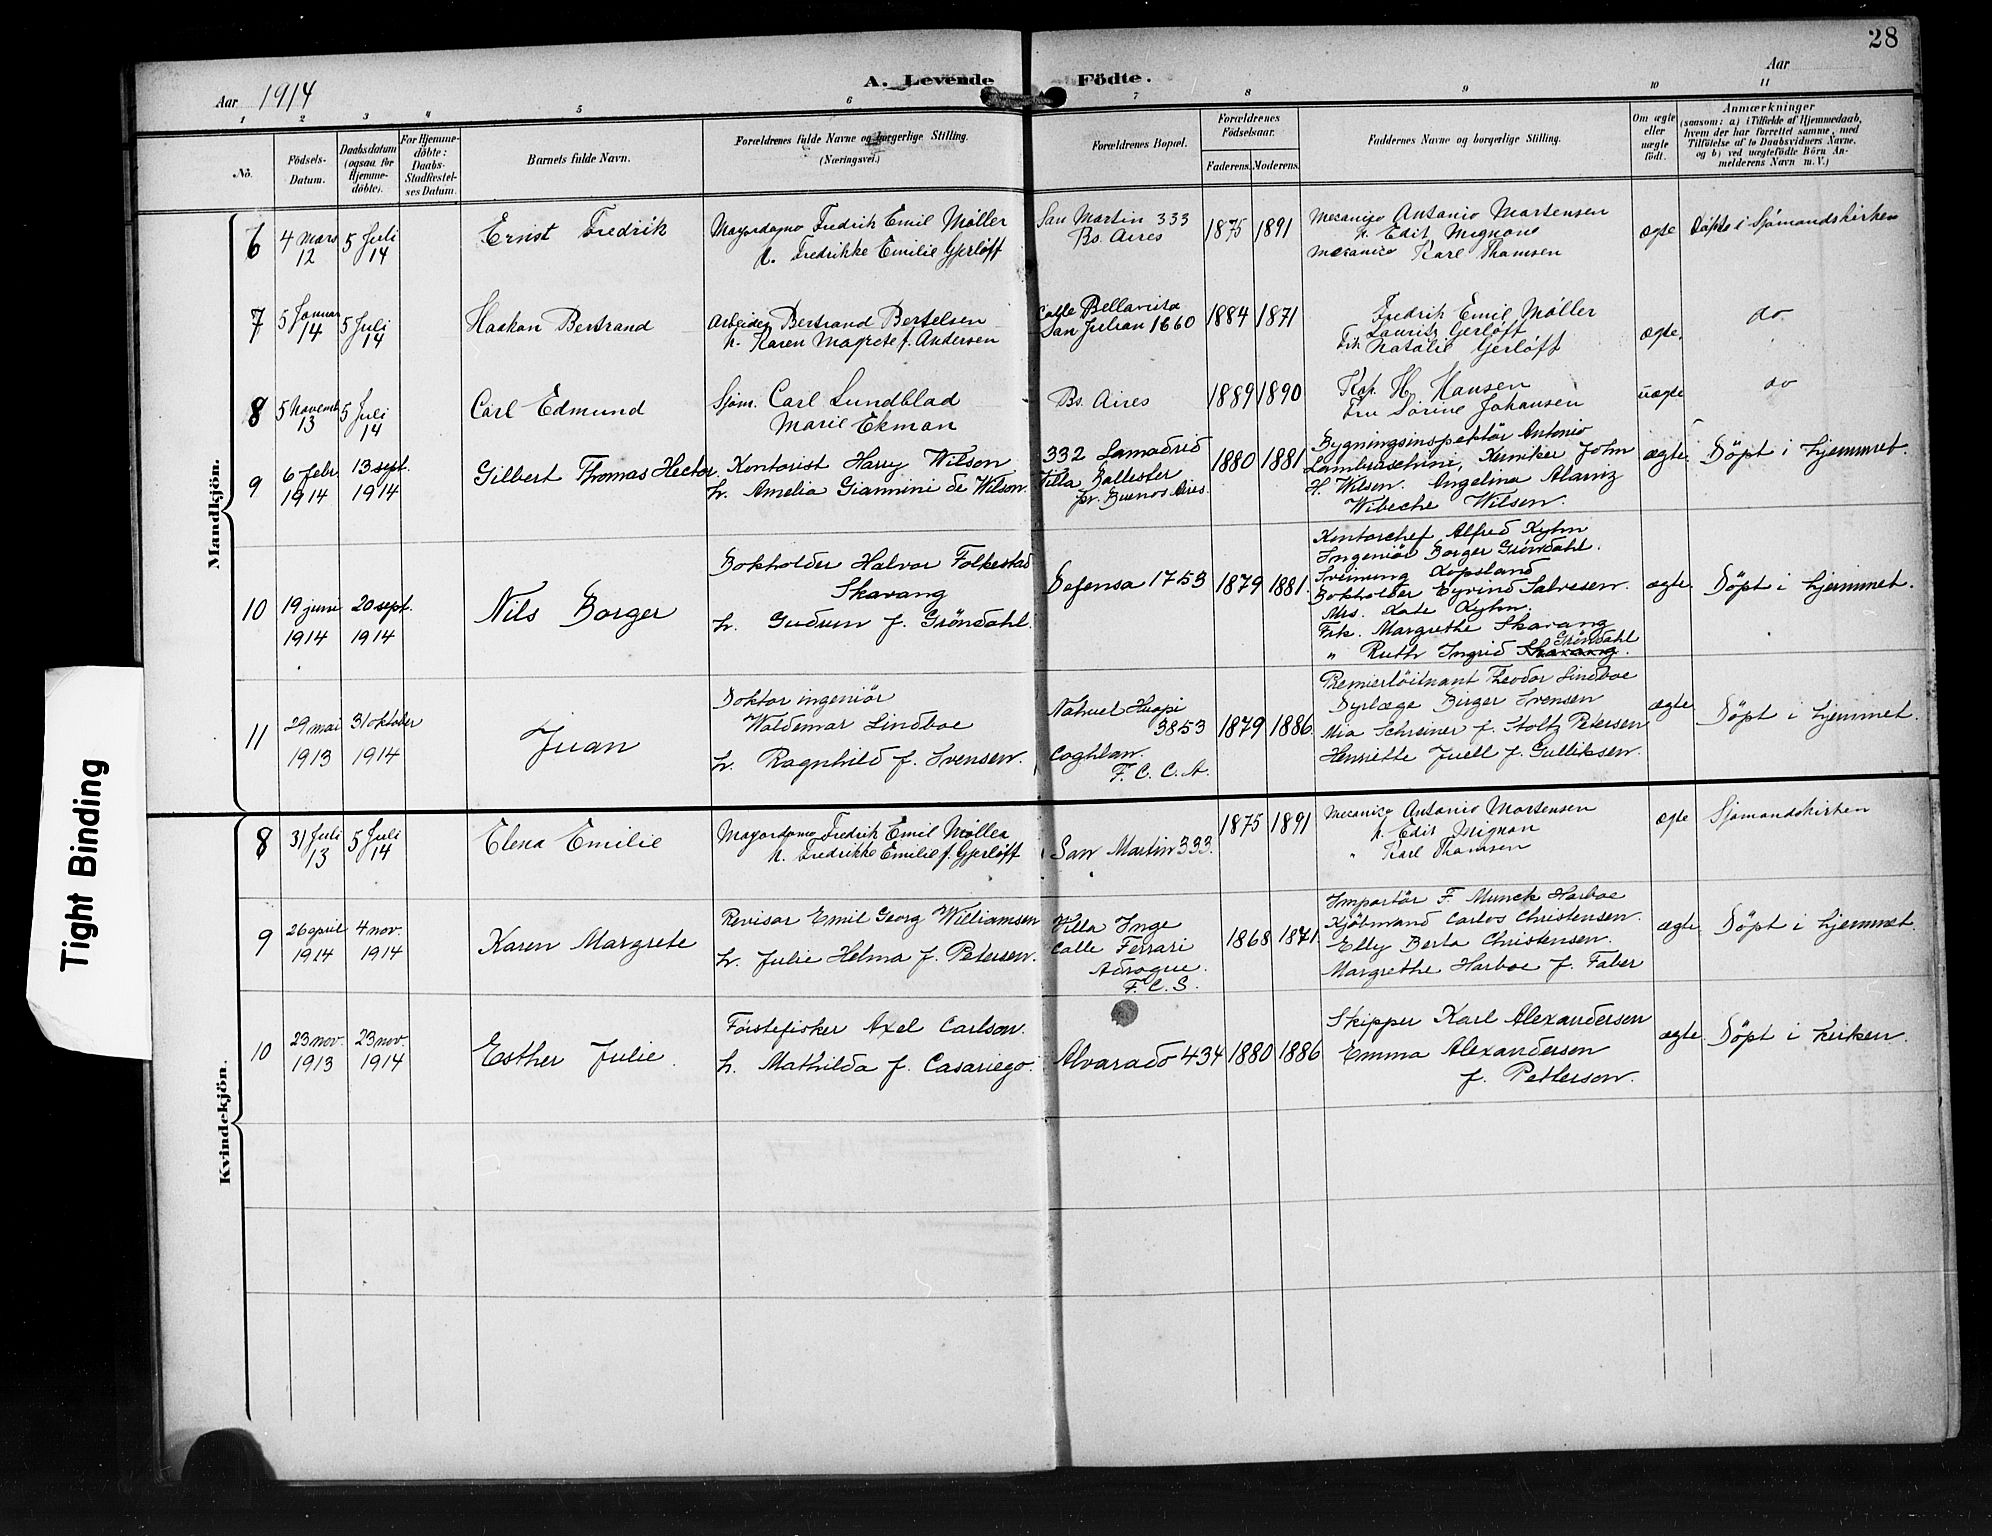 28
A. Levende Födte.
Aar 1914
Aar
1 2 3 4 5 6 7 8 9 10 11
No.
Födsels-Datum.
Daabsdatum (ogsaa for Hjemme-döbte).
For Hjemme-döbte: Daabs-Stadfæstel-ses Datum.
Barnets fulde Navn.
Forældrenes fulde Navne og borgerlige Stilling. (Næringsvei.)
Forældrenes Bopæl.
Forældrenes Födselsaar.
Faderens. Moderens.
Faddernes Navne og borgerlige Stilling.
Om ægte eller uægte födt.
Anmærkninger
(saasom: a) i Tilfælde af Hjemmedaab, hvem der har forrettet samme, med Tilföielse af to Daabsvidners Navne, og b) ved uægtefödte Börn An-melderens Navn m. V.)
Mandkjön.
6
4 Mars 12
5 Juli 14
Ernst Fredrik
Mayordomo Fredrik Emil Møller
h. Fredrikke Emilie Gjerløff
San Martin 333
Bs. Aires
1875 1891
Mecanico Antonio Mortensen
h. Edit Mignone
Mecanico Karl Thamsen
ægte
Døpt i Sjømandskirken
7
5 Januar 14
5 Juli 14
Haakon Bertrand
Arbeider Bertrand Bertelsen
h. Karen Magrete f. Andersen
Calle Bellavista
San Julian 1660
1884 1871
Fredrik Emil Møller
Lauritz Gerløff
Frk Natalie Gjerløff
ægte.
do.
8
5 Novemb 13
5 Juli 14
Carl Edmund
Sjøm. Carl Lundblad
Marie Ekman
Bs. Aires
1889 1890
Kap. H. Hansen
Fru Sørine Johansen
uægte
do
9
6 febr. 1914
13 sept. 1914
Gilbert Thomas Hector
Kontorist Harry Wilson
h. Amelia Giannini de Wilson.
332 Lamadrid
Villa Ballester
pr. Buenos Aires.
1880 1881
Bygningsinspektör Antonio
Lambruschini, Kemiker John
H. Wilson. Angelina Alaniz
Wibeche Wilson.
ægte.
Döpt i hjemmet.
10
19 juni 1914
20 sept. 1914
Nils Borger
Bokholder Halvor Folkestad
Skavang
h. Gudrun f. Gröndahl.
Defensa 1753
1879 1881.
Kontorchef Alfred Kyhn
Ingeniör Borger Gröndahl.
Sveinung Kopsland
Bokholder Eyvind Salvesen.
Mrs. Kate Kyhn.
Frk. Margrethe Skavang
Gröndahl
" Ruth Ingrid Skavang.
ægte
Döpt i hjemmet.
11
29 mai 1913
31 oktober 1914
Juan
Doktor ingeniör
Waldemar Lindboe
h. Ragnhild f. Svensen.
Nahuel Huapi
3853
Coghlan.
F. C. C. A.
1879 1886.
Premierlöitnant Theodor Lindboe
Dyrlæge Birger Svensen
Mia Schreiner f. Stoltz Petersen
Henriette Juell f. Gulliksen.
ægte
Döpt i hjemmet.
Kvindekjön.
8
31 Juli 13
5 Juli 14
Elena Emilie
Mayordomo Fredrik Emil Møller
h. Fredrikke Emilie f. Gjerløff
San Martin 333.
1875 1891
Mecanico Antonio Mortensen
h. Edit Mignon
" Karl Thamsen
ægte
Sjømandskirken
9
26 april 1914
4 nov. 1914
Karen Margrete
Revisor Emil Georg Williamsen
h. Julie Helma f. Petersen.
Villa Inge
Calle Ferrari
Adrogue.
F. C. S.
1868 1871
Importör F. Munck Harboe
Kjöbmand Carlos Christensen.
Elly Berta Christensen.
Margrethe Harboe f. Faber
ægte
Döpt i hjemmet.
10
23 nov. 1913
23 nov. 1914
Esther Julie.
Förstefisker Axel Carlson.
h. Mathilda f. Casariego.
Alvarado 434
1880 1886
Skipper Karl Alexandersen
Emma Alexandersen
f. Petterson.
ægte.
Döpt i kirken.
Tight Binding